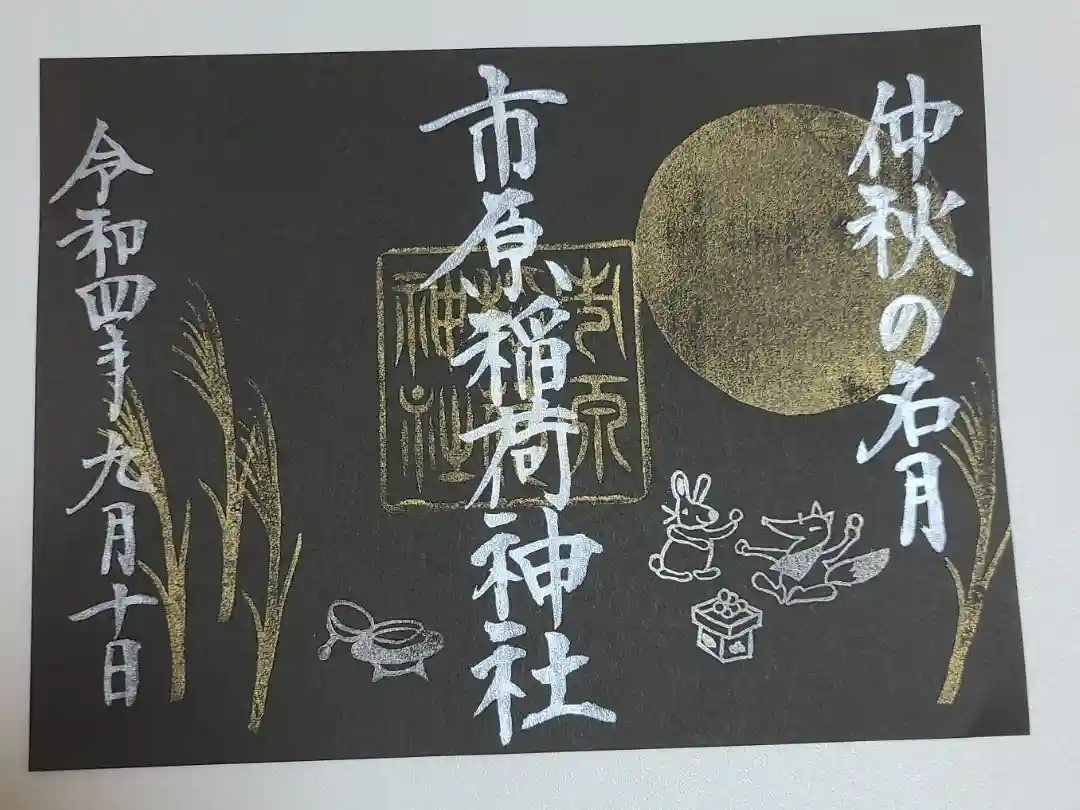 仲秋の名月
市原稲荷神社
市原稲荷神社
令和四年九月十日